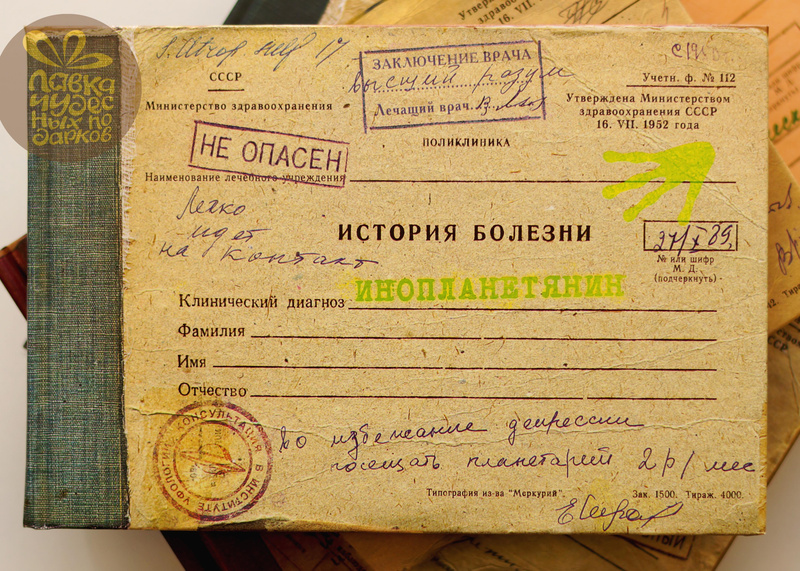 Лавка
чудес
ных по
дарков
СССР
Министерство здравоохранения
ЗАКЛЮЧЕНИЕ ВРАЧА
высший разум
Лечащий врач.
Учетн. ф. № 112
Утверждена Министерством
здравоохранения СССР
16. VII. 1952 года
НЕ ОПАСЕН
ПОЛИКЛИНИКА
Наименование лечебного учреждения
Легко
идет
на контакт
ИСТОРИЯ БОЛЕЗНИ
27/X 89.
№ или шифр
М. Д.
(подчеркнуть)
Клинический диагноз ИНОПЛАНЕТЯНИН
Фамилия
Имя
Отчество
КОНСУЛЬТАЦИЯ В ИНСТИТУТЕ УФОЛОГИИ
во избежание депрессии
посещать планетарий 2 р/мес
Типография из-ва "Меркурий". Зак. 1500. Тираж. 4000.